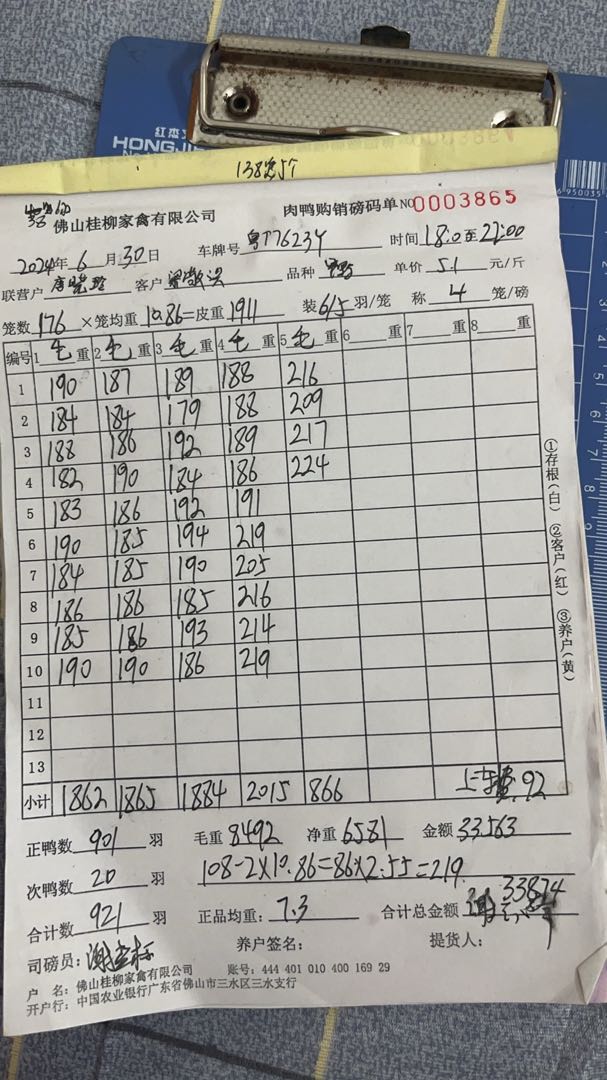 红杰文
HONGJIE
138笼5个
佛山桂柳家禽有限公司 肉鸭购销磅码单 NO 0003865
2024年 6 月 30 日 车牌号 粤T76234 时间 18:0至22:00
联营户 客户 品种 单价 5.1 元/斤
笼数 176 ×笼均重 10.86=皮重 1911 装 6/5 羽/笼 称 4 笼/磅
编号 1 毛 重 2 毛 重 3 毛 重 4 毛 重 5 毛 重 6 重 7 重 8 重
1 190 187 189 188 216
2 184 184 179 188 209
3 188 186 192 189 217
4 182 190 184 186 224
5 183 186 192 191
6 190 185 194 219
7 184 185 190 205
8 186 186 185 216
9 185 186 193 214
10 190 190 186 219
11
12
13
小计 1862 1865 1884 2015 866 上车费.92
正鸭数 901 羽 毛重 8492 净重 6581 金额 33563
次鸭数 20 羽 108-2×10.86=86×2.55=219
合计数 921 羽 正品均重: 7.3 合计总金额 33874
司磅员: 养户签名: 提货人:
户 名: 佛山桂柳家禽有限公司 账号: 444 401 010 400 169 29
开户行: 中国农业银行广东省佛山市三水区三水支行
①存根(白) ②客户(红) ③养户(黄)